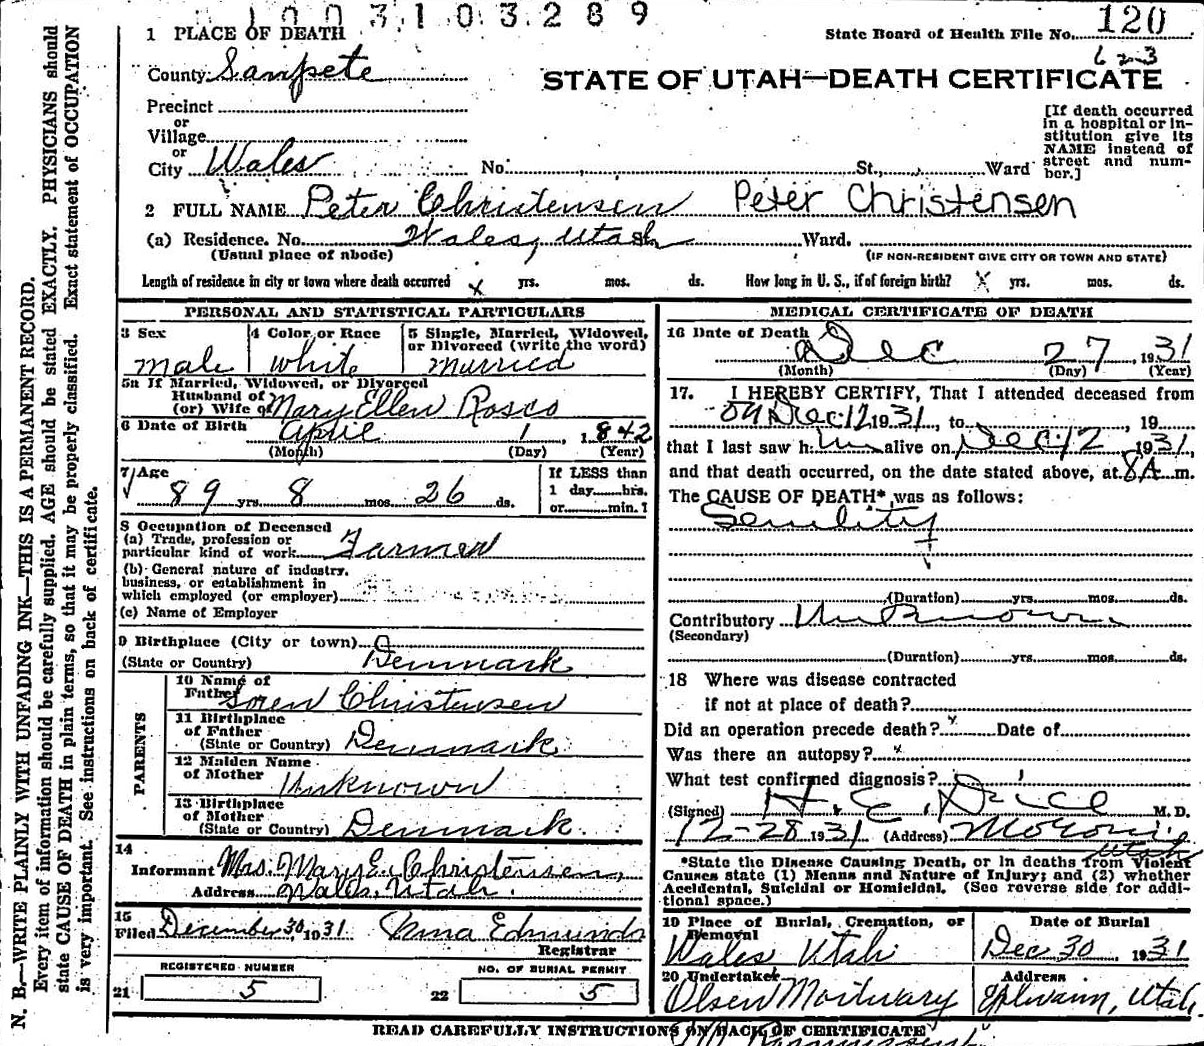 1003103289
1 PLACE OF DEATH
State Board of Health File No. 120
County Sanpete
STATE OF UTAH—DEATH CERTIFICATE
Precinct
or
Village
or
City Wales No. St., Ward
[If death occurred
in a hospital or in-
stitution give its
NAME instead of
street and num-
ber.]
2 FULL NAME Peter Christensen Peter Christensen
(a) Residence. No. Wales, Utah Ward.
(Usual place of abode) (IF NON-RESIDENT GIVE CITY OR TOWN AND STATE)
Length of residence in city or town where death occurred x yrs. mos. ds. How long in U. S., if of foreign birth? X yrs. mos. ds.
PERSONAL AND STATISTICAL PARTICULARS
3 Sex 4 Color or Race 5 Single, Married, Widowed,
or Divorced (write the word)
male white married
5a If Married, Widowed, or Divorced
Husband of
(or) Wife of Mary Ellen Rosco
6 Date of Birth April 1, 1842
(Month) (Day) (Year)
7 Age If LESS than
89 yrs. 8 mos. 26 ds. 1 day hrs.
or min.?
8 Occupation of Deceased
(a) Trade, profession or
particular kind of work Farmer
(b) General nature of industry,
business, or establishment in
which employed (or employer)
(c) Name of Employer
9 Birthplace (City or town)
(State or Country) Denmark
PARENTS
10 Name of
Father Soren Christensen
11 Birthplace
of Father
(State or Country) Denmark
12 Maiden Name
of Mother Unknown
13 Birthplace
of Mother
(State or Country) Denmark.
14
Informant Mrs. Mary E. Christensen,
Address Wales, Utah.
15
Filed December 30, 1931 Edmunds
Registrar
REGISTERED NUMBER NO. OF BURIAL PERMIT
21 5 22 5
MEDICAL CERTIFICATE OF DEATH
16 Date of Death Dec 27, 1931
(Month) (Day) (Year)
17. I HEREBY CERTIFY, That I attended deceased from
on Dec 12 1931, to , 19
that I last saw him alive on Dec 12 1931,
and that death occurred, on the date stated above, at 8A m.
The CAUSE OF DEATH* was as follows:
Senility
(Duration) yrs. mos. ds.
Contributory Unknown
(Secondary)
(Duration) yrs. mos. ds.
18 Where was disease contracted
if not at place of death?
Did an operation precede death? x Date of
Was there an autopsy? x
What test confirmed diagnosis?
(Signed) H. E. Dice M. D.
12-28 1931 (Address) Moroni
Utah
*State the Disease Causing Death, or in deaths from Violent
Causes state (1) Means and Nature of Injury; and (2) whether
Accidental, Suicidal or Homicidal. (See reverse side for addi-
tional space.)
19 Place of Burial, Cremation, or Date of Burial
Removal
Wales Utah Dec 30 1931
20 Undertaker Address
Olsen Mortuary Ephraim, Utah.
READ CAREFULLY INSTRUCTIONS ON BACK OF CERTIFICATE
N. B.—WRITE PLAINLY WITH UNFADING INK—THIS IS A PERMANENT RECORD.
Every item of information should be carefully supplied. AGE should be stated EXACTLY. PHYSICIANS should
state CAUSE OF DEATH in plain terms, so that it may be properly classified. Exact statement of OCCUPATION
is very important. See instructions on back of certificate.